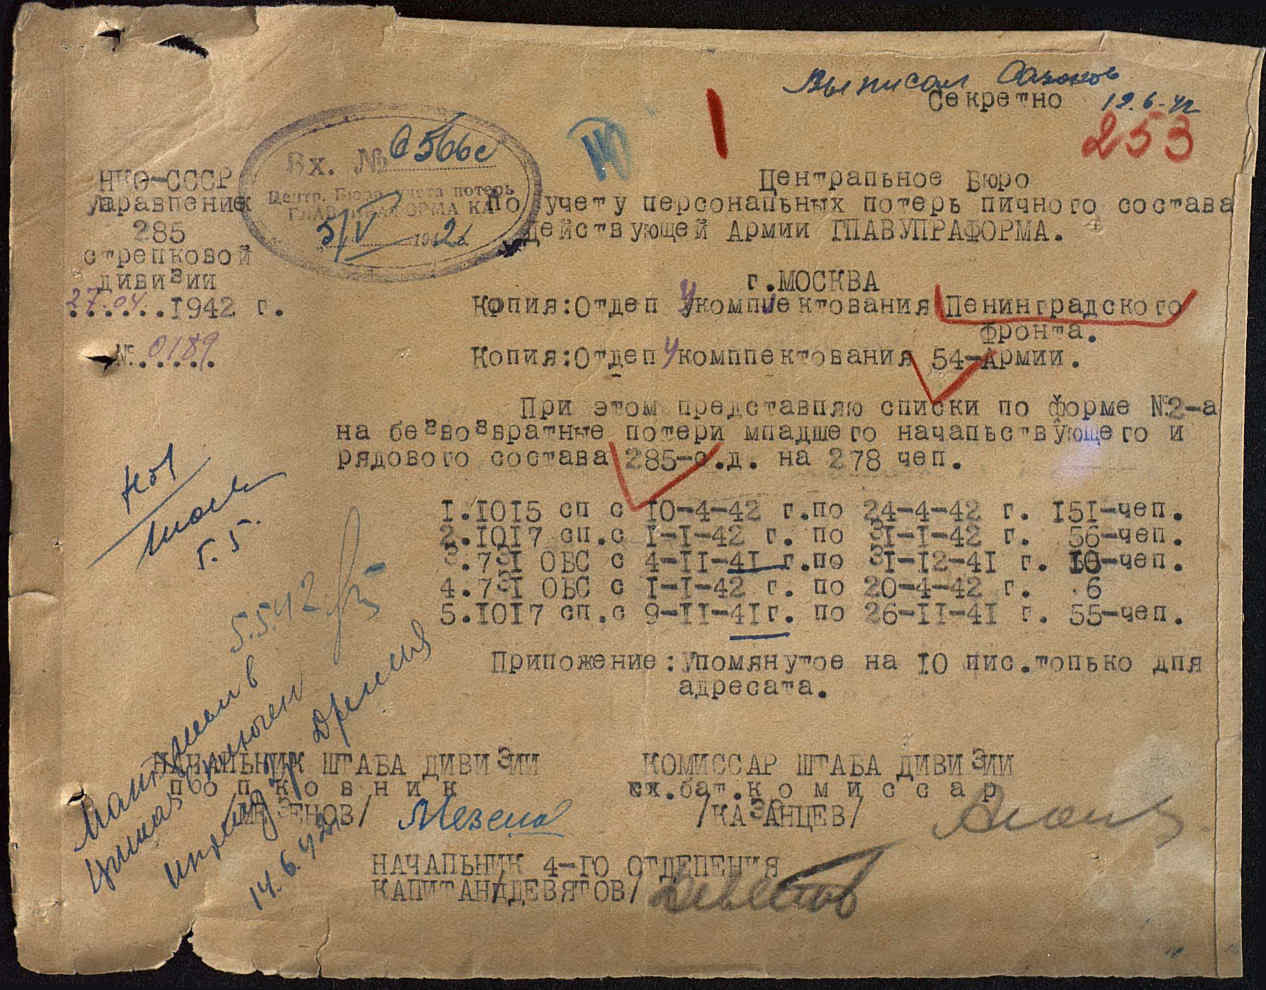 Выписал Сазонов
Секретно 19.6-42
253
Вх. № 0566с
Центр. Бюро учета потерь
ГЛАВУПРАФОРМА КА
5/V 1942
НКО-СССР
Управление
285
стрелковой
дивизии
27.04.1942 г.
№ 0189
Центральное Бюро
По учету персональных потерь личного состава
Действующей Армии ГЛАВУПРАФОРМА.
г.МОСКВА
Копия:Отдел укомплектования Ленинградского
фронта.
Копия:Отдел укомплектования 54-Армии.
При этом представляю списки по форме №2-а
на безвозвратные потери младшего начальствующего и
рядового состава 285-с.д. на 278 чел.
1.1015 сп с 10-4-42 г.по 24-4-42 г. 151-чел.
2.1017 сп.с 1-1-42 г. по 31-1-42 г. 56-чел.
3.731 ОБС с 4-11-41 г.по 31-12-41 г. 10-чел.
4.731 ОБС с 1-1-42 г. по 20-4-42 г. 6
5.1017 сп.с 9-11-41г. по 26-11-41 г. 55-чел.
Приложение:Упомянутое на 10 лис.только для
адресата.
5.5.
5.5.42
14.6.42
НАЧАЛЬНИК ШТАБА ДИВИЗИИ
полковник
/МЕЗЕНОВ/
КОМИССАР ШТАБА ДИВИЗИИ
ст.бат.комиссар
/КАЗАНЦЕВ/
НАЧАЛЬНИК 4-ГО ОТДЕЛЕНИЯ
КАПИТАН/ДЕВЯТОВ/ Девятов